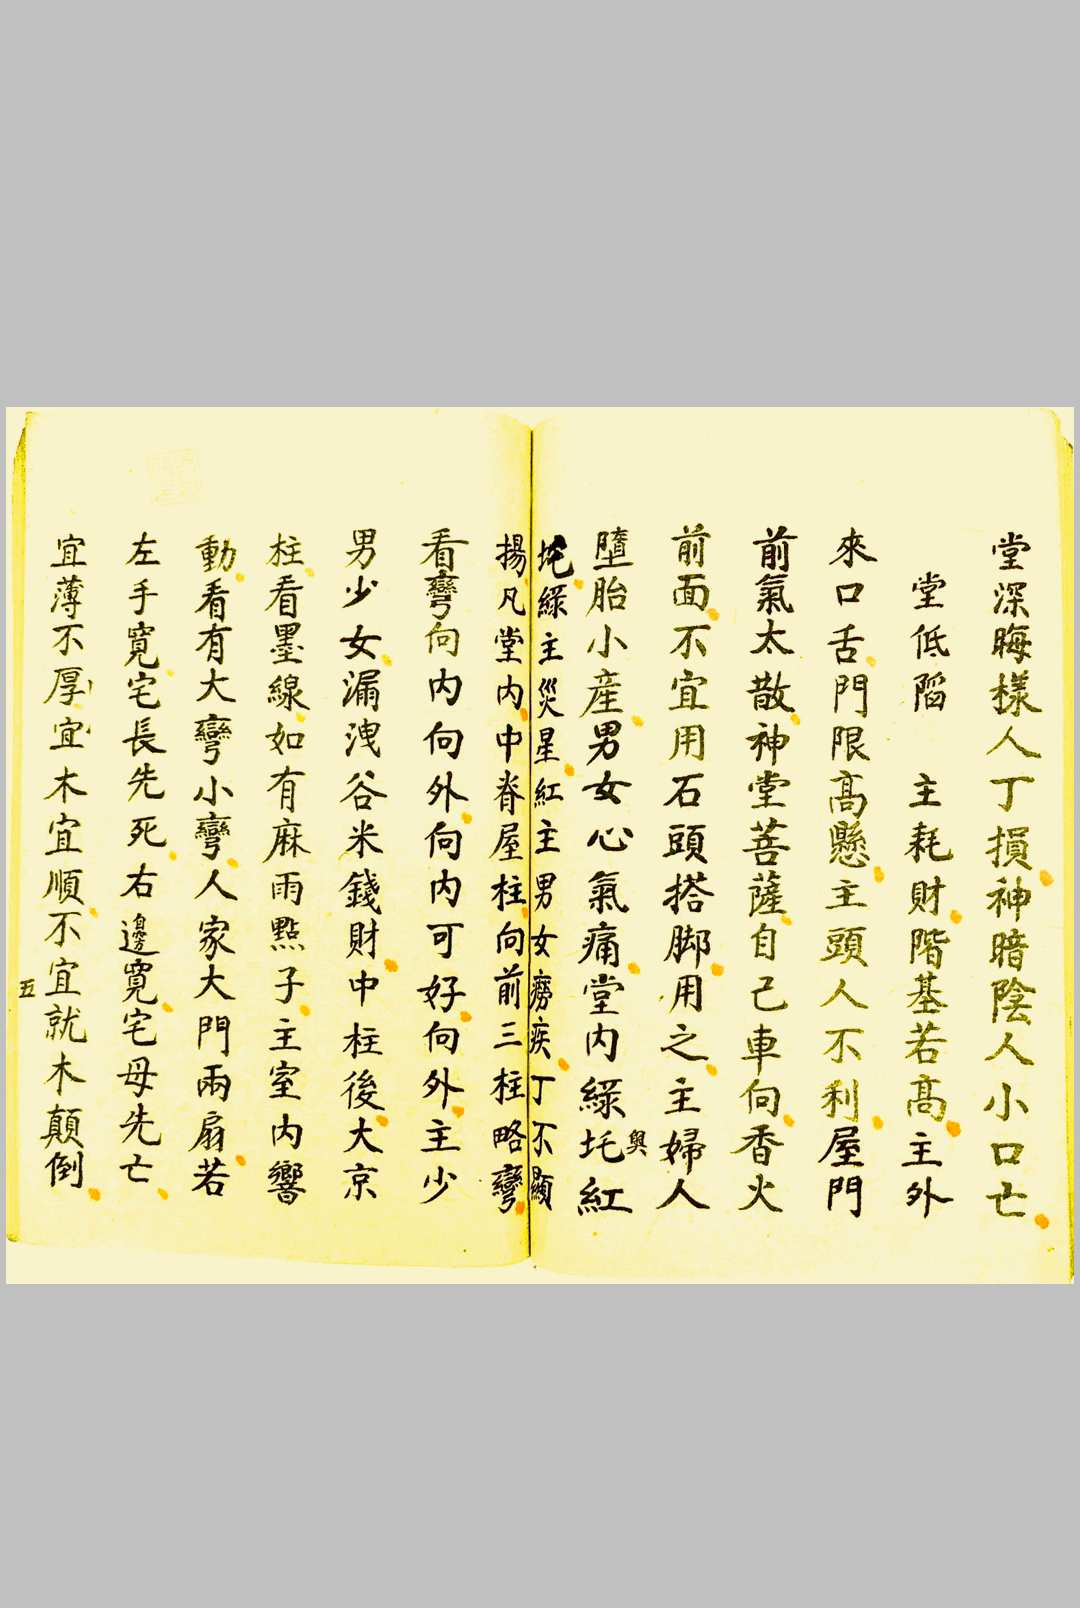 堂深晦樣人丁損神暗陰人小口亡
堂低陷　主耗財階基若高主外
來口舌門限高懸主頭人不利屋門
前氣太散神堂菩薩自己車向香火
前面不宜用石頭搭脚用之主婦人
墮胎小産男女心氣痛堂内綠圫與紅
圫綠主災星紅主男女癆疾丁不顯
揚凡堂内中脊屋柱向前三柱略彎
看彎向内向外向内可好向外主少
男少女漏洩谷米錢財中柱後大京
柱看墨線如有麻雨點子主室内響
動看有大彎小彎人家大門兩扇若
左手寬宅長先死右邊寬宅母先亡
宜薄不厚宜木宜順不宜就木顛倒
五